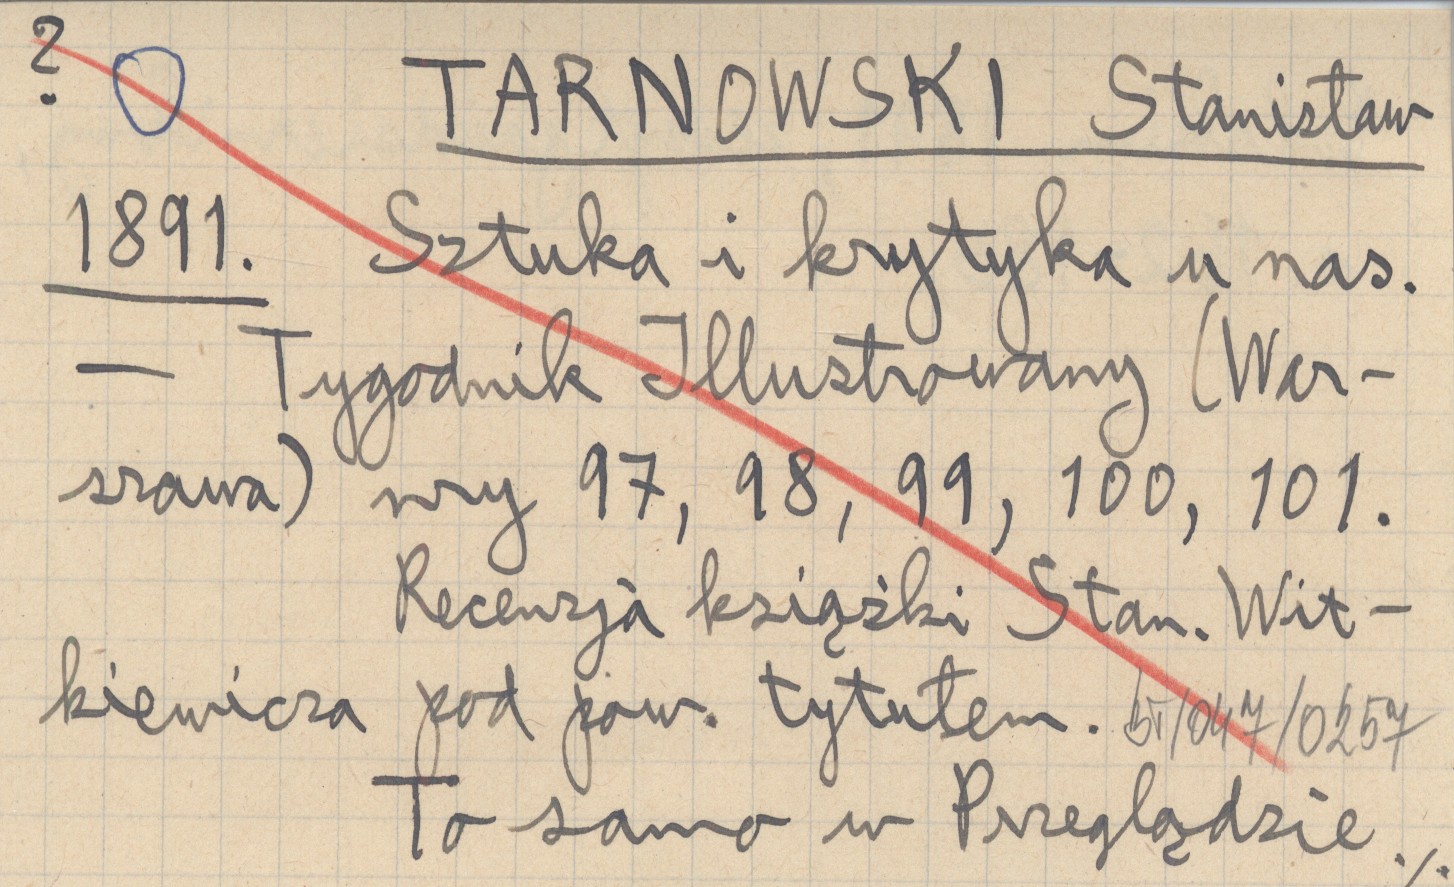 ?
TARNOWSKI Stanisław
1891. Sztuka i krytyka u nas.
— Tygodnik Illustrowany (War-
szawa) nry 97, 98, 99, 100, 101.
Recenzja książki Stan. Wit-
kiewicza pod pow. tytułem.
/047/0257
To samo w Przeglądzie ./.